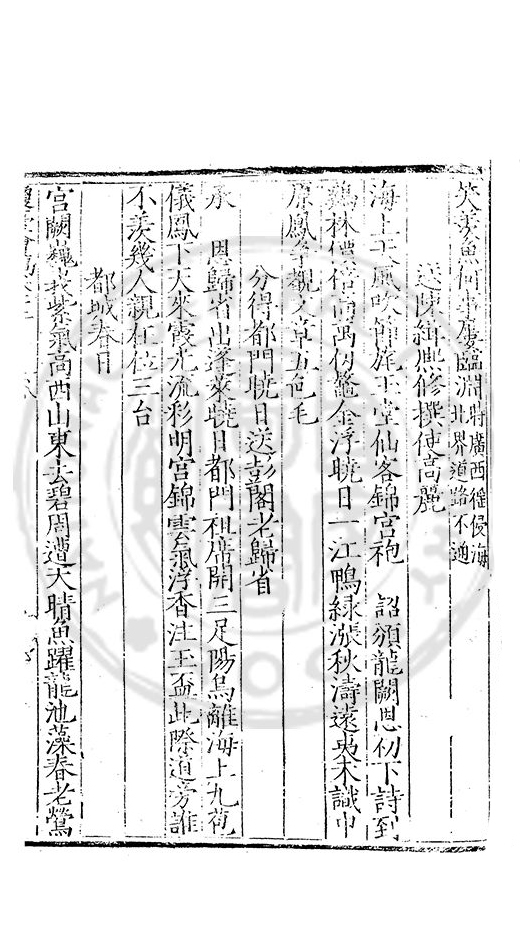 羡魚何事屢臨淵時廣西徭侵海北界道路不通
送陳緝熈修撰使高麗
海上天風吹節旄玉堂仙客錦宮袍 詔頒龍闕恩初下詩到
鷄林價倍高萬仞鰲金浮曉日一江鴨緑漲秋濤遠夷未識中
原鳳爭覩文章五色毛
分得都門曉日送彭閣老歸省
承 恩歸省出蓬萊曉日都門祖席開三足陽烏離海上九苞
儀鳳下天來霞光流彩明宮錦雲氣浮香注玉盃此際道旁誰
不羡幾人親在位三台
都城春日
宮闕巍我紫氣高西山東去碧周遭天晴魚躍龍池藻春老鶯